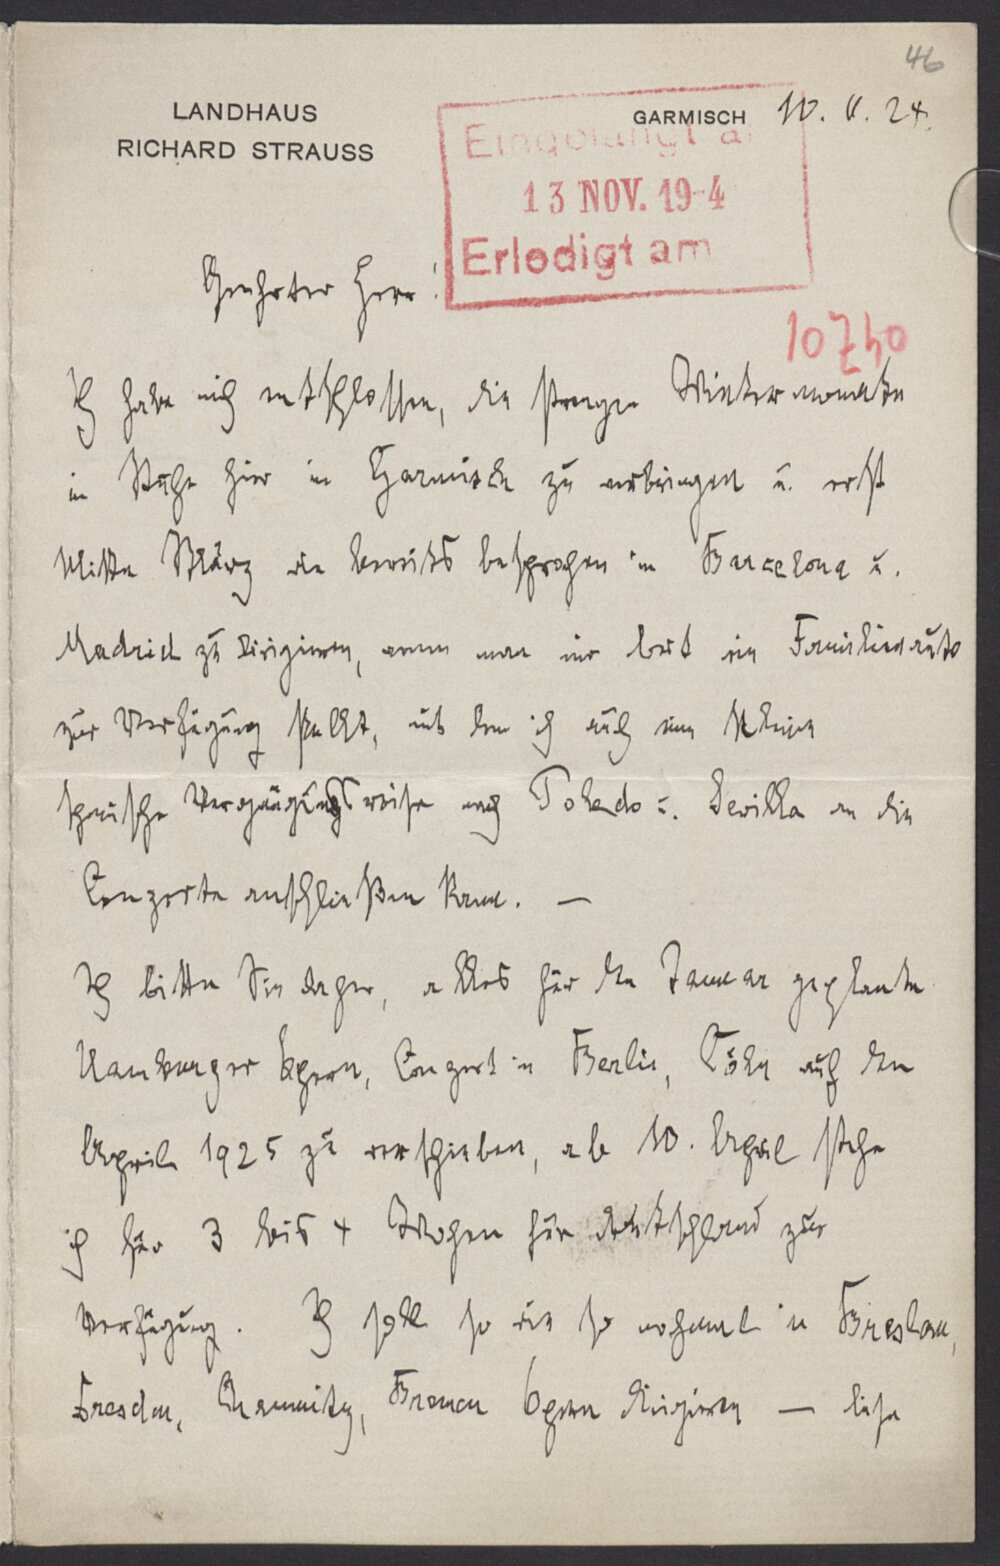 46
LANDHAUS
RICHARD STRAUSS
GARMISCH 10. 11. 24.
Eingelangt a
13 NOV. 19-4
Erledigt am
Geehrter Herr!
10740
Ich habe mich entschlossen, die strengen Wintermonate
in Ruhe hier in Garmisch zu verbringen u. erst
Mitte März wie bereits besprochen in Barcelona u.
Madrid zu dirigieren, wenn man mir dort ein Familienauto
zur Verfügung stellt, mit dem ich auch eine kleine
spanische Vergnügungsreise nach Toledo u. Sevilla an die
Conzerte anschließen kann. —
Ich bitte Sie daher, alles für den Januar geplante
Hamburger Opern, Conzert in Berlin, Cöln auf den
April 1925 zu verschieben, ab 10. April stehe
ich für 3 bis 4 Wochen für Deutschland zur
Verfügung. Ich soll so wie so nochmal in Breslau,
Dresden, Chemnitz, Bremen Opern dirigieren — diese